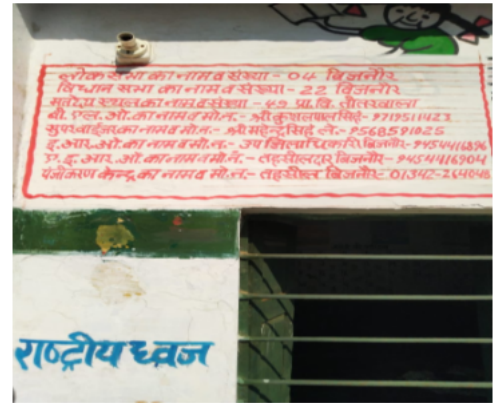 लोक सभा का नाम व संख्या - 04 बिजनौर
विधान सभा का नाम व संख्या - 22 बिजनौर
मतदेय स्थल का नाम व संख्या - 49 प्रा. वि. तीतरवाला
बी. एल. ओ. का नाम व मो.न. - श्री कुशलपाल सिंह - 9719511423
सुपरवाईजर का नाम व मो.न. - श्री महेन्द्र सिंह ले. - 9568591025
ई. आर. ओ. का नाम व मो.न. - उप जिलाधिकारी बिजनौर - 9454416896
ए. ई. आर. ओ. का नाम व मो.न. - तहसीलदार बिजनौर - 9454416904
पंजीकरण केन्द्र का नाम व मो.न. - तहसील बिजनौर - 01342-264048
राष्ट्रीय ध्वज